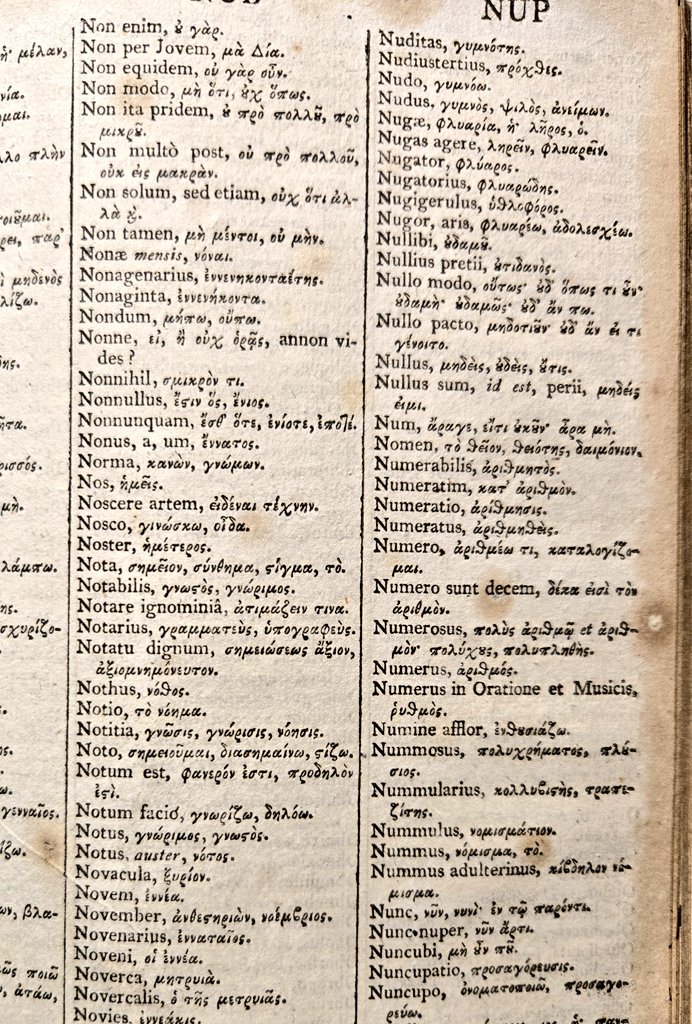 NUP
μέλαν,
νία.
μαι.
λο πλὴν
ρει, παρ᾽
ὶ μηδενὸς
λίζω.
ης.
ῆτα.
ρισσός.
μὴ.
λάμπω.
ης.
σχυρίζο-
γενναῖος.
ων, βλα-
ῶς ποιῶ
, ἀτάω,
Non enim, ȣ̓ γὰρ.
Non per Jovem, μὰ Δία.
Non equidem, οὐ γὰρ οὖν.
Non modo, μὴ ὅτι, ȣ̓χ ὅπως.
Non ita pridem, ȣ̓ πρὸ πολλȣ͂, πρὸ
μικρȣ͂.
Non multò post, οὐ πρὸ πολλοῦ,
οὐκ εἰς μακρὰν.
Non solum, sed etiam, οὐχ ὅτι ἀλ-
λὰ ϗ.
Non tamen, μὴ μέντοι, οὐ μὴν.
Nonæ mensis, νόναι.
Nonagenarius, ἐννενηκονταέτης.
Nonaginta, ἐννενήκοντα.
Nondum, μήπω, οὔπω.
Nonne, εἰ, ἢ οὐχ ὁρᾷς, annon vi-
des?
Nonnihil, σμικρὸν τι.
Nonnullus, ἔϛιν ὃς, ἔνιος.
Nonnunquam, ἔσθ᾽ ὅτε, ἐνίοτε,
Nonus, a, um, ἔννατος.
Norma, κανὼν, γνώμων.
Nos, ἡμεῖς.
Noscere artem, εἰδέναι τέχνην.
Nosco, γινώσκω, οἶδα.
Noster, ἡμέτερος.
Nota, σημεῖον, σύνθημα, ϛίγμα, τὸ.
Notabilis, γνωϛὸς, γνώριμος.
Notare ignominiâ, ἀτιμάζειν τινα.
Notarius, γραμματεὺς, ὑπογραφεὺς.
Notatu dignum, σημειώσεως ἄξιον,
ἀξιομνημόνευτον.
Nothus, νόθος.
Notio, τὸ νόημα.
Notitia, γνῶσις, γνώρισις, νόησις.
Noto, σημειοῦμαι, διασημαίνω, ϛίζω.
Notum est, φανερόν ἐστι, προδηλὸν
ἐϛὶ.
Notum facio, γνωρίζω, δηλόω.
Notus, γνώριμος, γνωϛὸς.
Notus, auster, νότος.
Novacula, ξυρίον.
Novem, ἐννέα.
November, ἀνθεϛηριὼν, νοέμβριος.
Novenarius, ἐνναταῖος.
Noveni, οἱ ἐννέα.
Noverca, μητρυιὰ.
Novercalis, ὁ τῆς μετρυιᾶς.
Novies, ἐννεάκις.
Nuditas, γυμνότης.
Nudiustertius, πρόχθες.
Nudo, γυμνόω.
Nudus, γυμνὸς, ψιλὸς, ἀνείμων.
Nugæ, φλυαρία, ἡ· λῆρος, ὁ.
Nugas agere, ληρεῖν, φλυαρεῖν.
Nugator, φλύαρος.
Nugatorius, φλυαρώδης.
Nugigerulus, ὑθλοφόρος.
Nugor, aris, φλυαρέω, ἀδολεσχέω.
Nullibi, ȣ̓δαμȣ͂.
Nullius pretii, ȣ̓τιδανὸς.
Nullo modo, οὔτως· ȣ̓δ᾽ ὅπως τι ȣ̓͂ν·
ȣ̓δαμῆ· ȣ̓δαμῶς· ȣ̓δ᾽ ἄν πω.
Nullo pacto, μηδοτιȣ͂ν· ȣ̓δ᾽ ἄν εἴ τι
γένοιτο.
Nullus, μηδεὶς, ȣ̓δεὶς, ȣ̓́τις.
Nullus sum, id est, perii, μηδείς
εἰμι.
Num, ἄραγε, εἴτι ȣ̓κȣ͂ν· ἆρα μὴ.
Nomen, τὸ θεῖον, θειότης, δαιμόνιον.
Numerabilis, ἀριθμητὸς.
Numeratim, κατ᾽ ἀριθμὸν.
Numeratio, ἀρίθμησις.
Numeratus, ἀριθμηθεὶς.
Numero, ἀριθμέω τι, καταλογίζο-
μαι.
Numero sunt decem, δέκα εἰσὶ τὸν
ἀριθμὸν.
Numerosus, πολὺς ἀριθμῷ et ἀριθ-
μὸν· πολύχȣς, πολυπληθὴς.
Numerus, ἀριθμός.
Numerus in Oratione et Musicis,
ῥυθμὸς.
Numine afflor, ἐνθȣσιάζω.
Nummosus, πολυχρήματος, πλȣ́-
σιος.
Nummularius, κολλυβιϛὴς, τραπε-
ζίτης.
Nummulus, νομισμάτιον.
Nummus, νόμισμα, τὸ.
Nummus adulterinus, κίβδηλον νό-
μισμα.
Nunc, νῦν, νυνὶ· ἐν τῷ παρόντι.
Nunc nuper, νῦν ἄρτι.
Nuncubi, μὴ ȣ̓͂ν πȣ͂.
Nuncupatio, προσαγόρευσις.
Nuncupo, ὀνοματοποιῶ, προσαγο-
ρεύω.